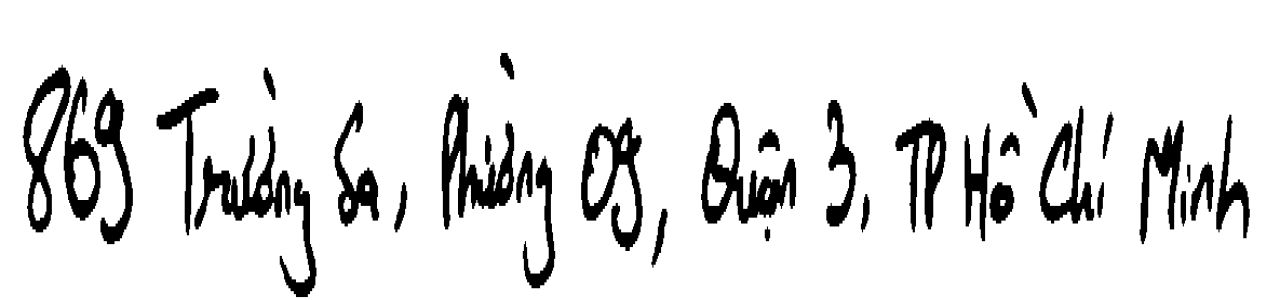 869 Trường Sa, Phường 09, Quận 3, TP Hồ Chí Minh